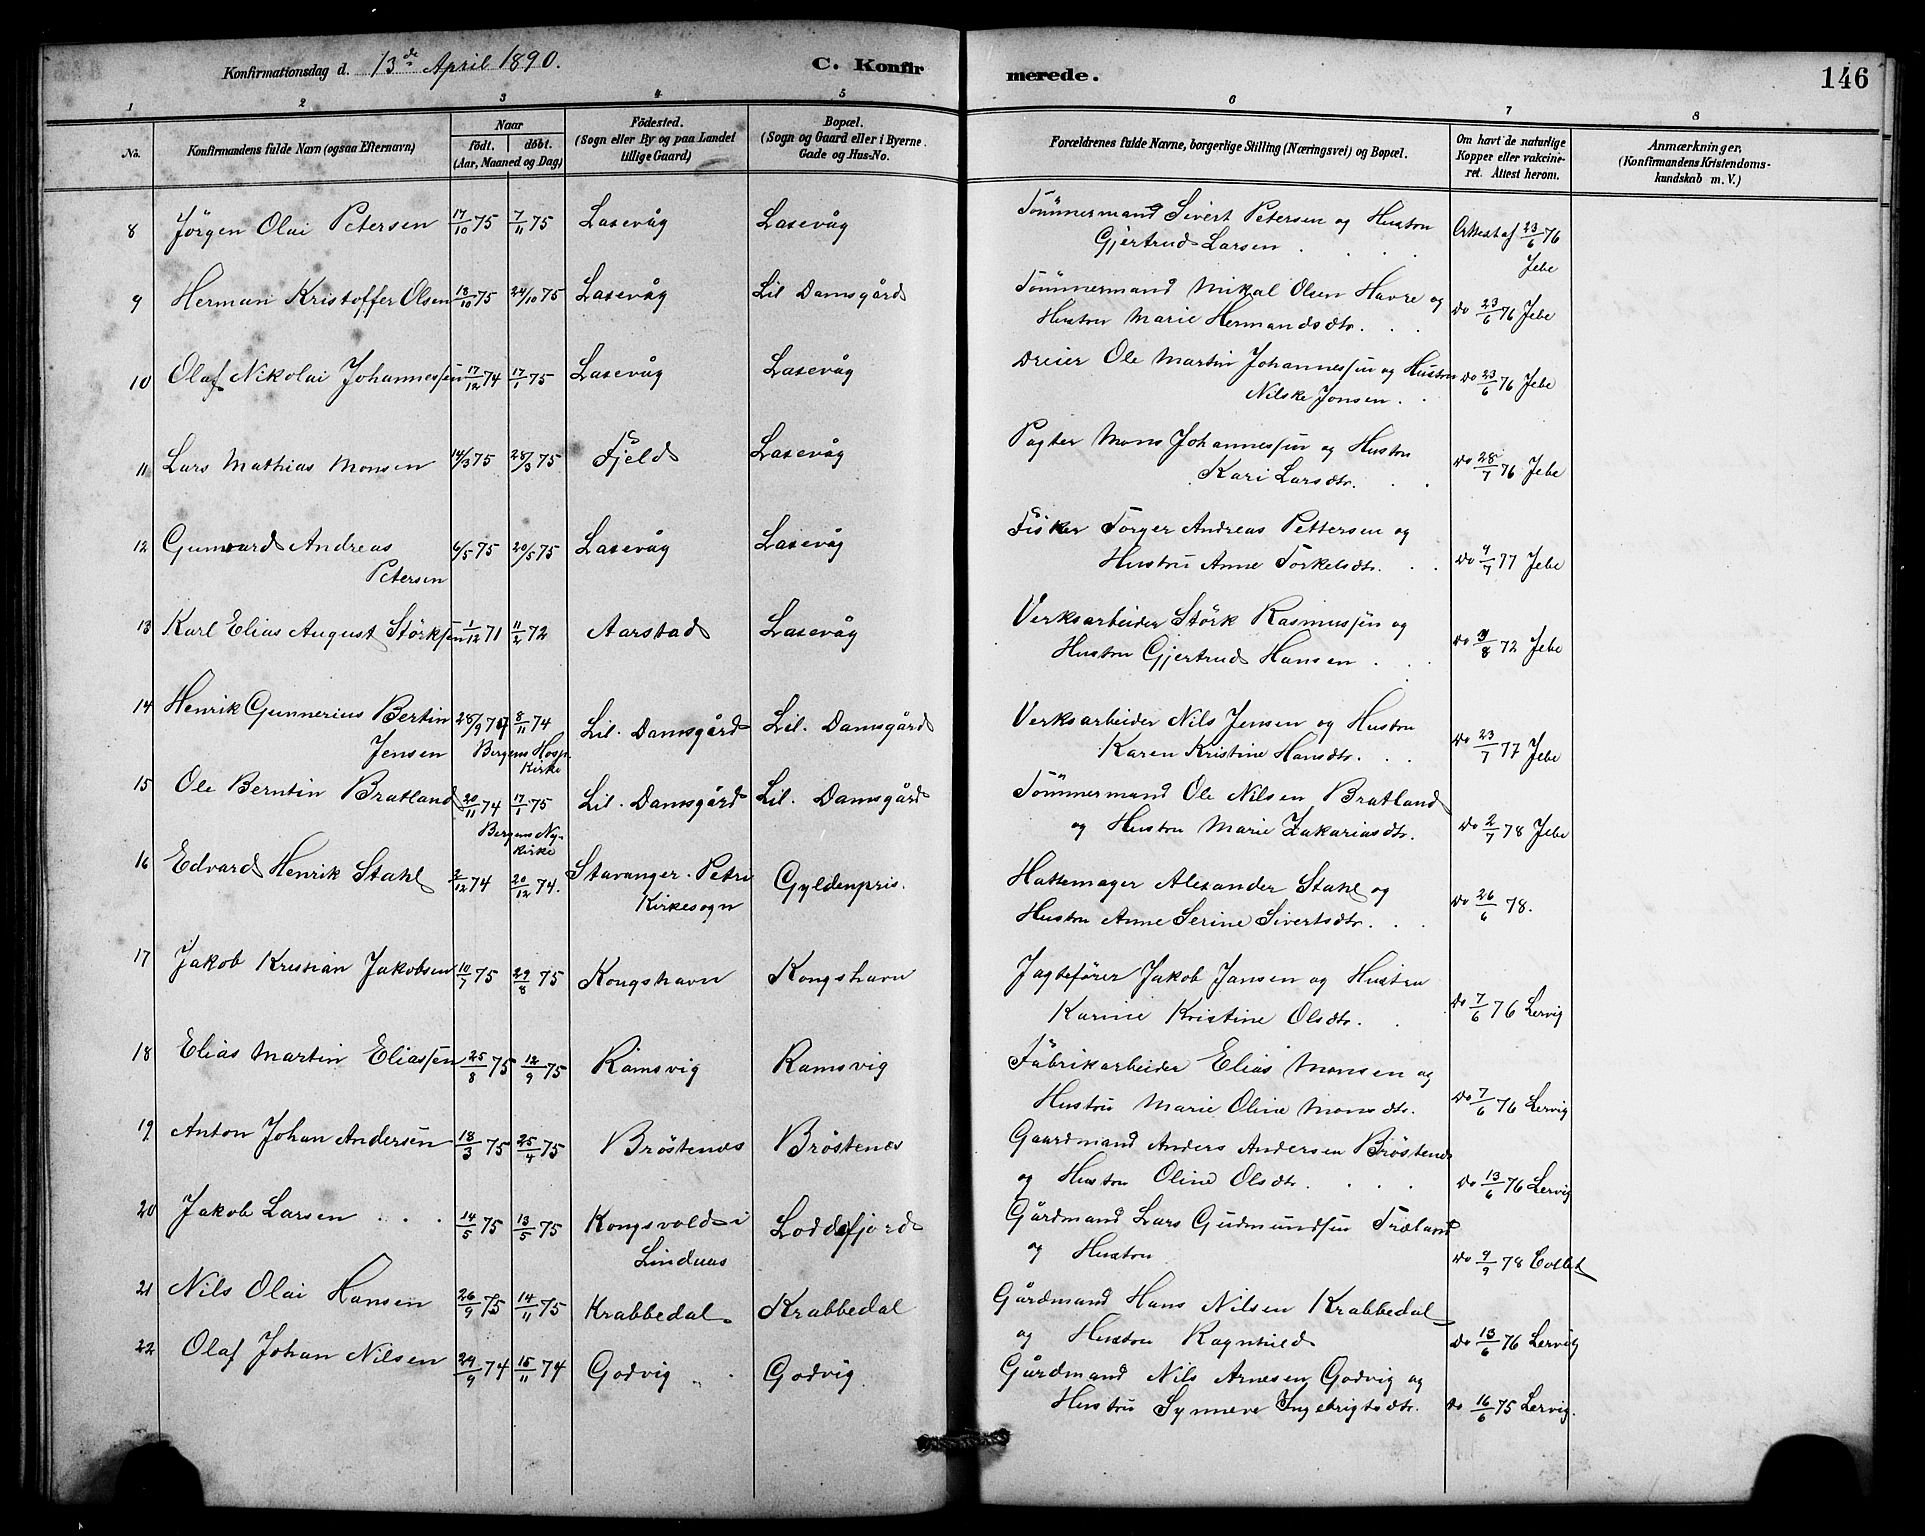 Konfirmationsdag d. 13de April 1890. C. Konfirmerede. 146
1 2 3 4 5 6 7 8
No. Konfirmandens fulde Navn (ogsaa Efternavn) Naar født. døbt. (Aar, Maaned og Dag) Fødested. (Sogn eller By og paa Landet tillige Gaard) Bopæl. (Sogn og Gaard eller i Byerne Gade og Hus-No. Forældrenes fulde Navne, borgerlige Stilling (Næringsvei) og Bopæl. Om havt de naturlige Kopper eller vakcineret. Attest herom. Anmærkninger. (Konfirmandens Kristendomskundskab m. V.)
8 Jörgen Olai Petersen 17/10 75 7/11 75 Laxevåg Laxevåg Tömmermand Sivert Petersen og Hustru
Gjertrud Larsen . . . Attest af 23/6 76 Jebe
9 Herman Kristoffer Olsen 18/10 75 24/10 75 Laxevåg Lil Damsgård Tömmermand Mikal Olsen Havre og
Hustru Marie Hermandsdtr. . . do 23/6 76 Jebe
10 Olaf Nikolai Johannessen 17/12 74 17/1 75 Laxevåg Laxevåg Dreier Ole Martin Johannessen og Hustru
Nilske Jonsen . . do 23/6 76 Jebe
11 Lars Mathias Monsen 14/3 75 28/3 75 Fjeld Laxevåg Pagter Mons Johannessen og Hustru
Kari Larsdtr. . . do 28/7 76 Jebe
12 Gunvard Andreas
Petersen 6/5 75 20/5 75 Laxevåg Laxevåg Fisker Torger Andreas Pettersen og
Hustru Anne Torkelsdtr. . . do 4/7 77 Jebe
13 Karl Elias August Störksen 1/12 71 11/2 72 Aarstad Laxevåg Verksarbeider Störk Rasmussen og
Hustru Gjertrud Hansen . . do 9/8 72 Jebe
14 Henrik Gunnerius Bertin
Jensen 28/9 74 8/11 74 Bergens Hosp. Kirke Lil. Damsgård Lil. Damsgård Verksarbeider Nils Jensen og Hustru
Karen Kristine Hansdtr. . . do 23/7 77 Jebe
15 Ole Berntin Bratland 20/11 74 17/1 75 Bergens Nykirke Lil. Damsgård Lil. Damsgård Tömmermand Ole Nilsen Bratland
og Hustru Marie Zakariasdtr. do 2/7 78 Jebe
16 Edvard Henrik Stahl 2/12 74 20/12 74. Stavanger. Petri
Kirkesogn Gyldenpris. Hattemager Alexander Stahl og
Hustru Anne Serine Sivertsdtr. . . do 26/6 78.
17 Jakob Kristian Jakobsen 10/7 75 29/8 75 Kongshavn Kongshavn Jagtefører Jakob Jansen og Hustru
Karine Kristine Olsdtr. . do 7/6 76 Lervig
18 Elias Martin Eliassen 25/8 75 12/9 75 Ramsvig Ramsvig Fabrikarbeider Elias Monsen og
Hustru Marie Oline Monsdtr. do 7/6 76 Lervig
19 Anton Johan Andersen 18/3 75 25/4 75 Bröstenes Bröstenes Gaardmand Anders Andersen Bröstenes
og Hustru Oline Olsdtr. . . . do 13/6 76 Lervig
20 Jakob Larsen . . . 14/5 75 13/5 75 Kongsvold i
Lindaas Loddefjord Gårdmand Lars Gudmundsen Træland
og Hustru do 9/9 78
21 Nils Olai Hansen 26/9 75 14/11 75 Krabbedal. Krabbedal Gårdmand Hans Nilsen Krabbedal
og Hustru Ragnhild do 13/6 76 Lervig
22 Olaf Johan Nilsen 29/9 74 15/11 74 Godvig . . Godvig Gårdmand Nils Arnesen Godvig og
Hustru Synneve Ingebrigtsdtr. do 16/6 75 Lervig.